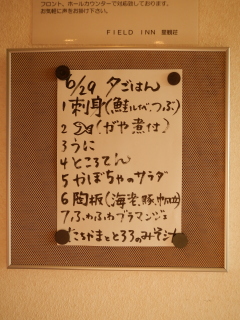 フロント、ホールカウンターで対応致しております。
お気軽に声をお掛け下さい。
FIELD INN 星観荘
6/29 夕ごはん
1 刺身(鮭ルイベ、つぶ)
2 (ガヤ煮付)
3 うに
4 ところてん
5 かぼちゃのサラダ
6 陶板(海老、豚、帆立)
7 ふわふわブラマンジェ
たちかまととろろのみそ汁